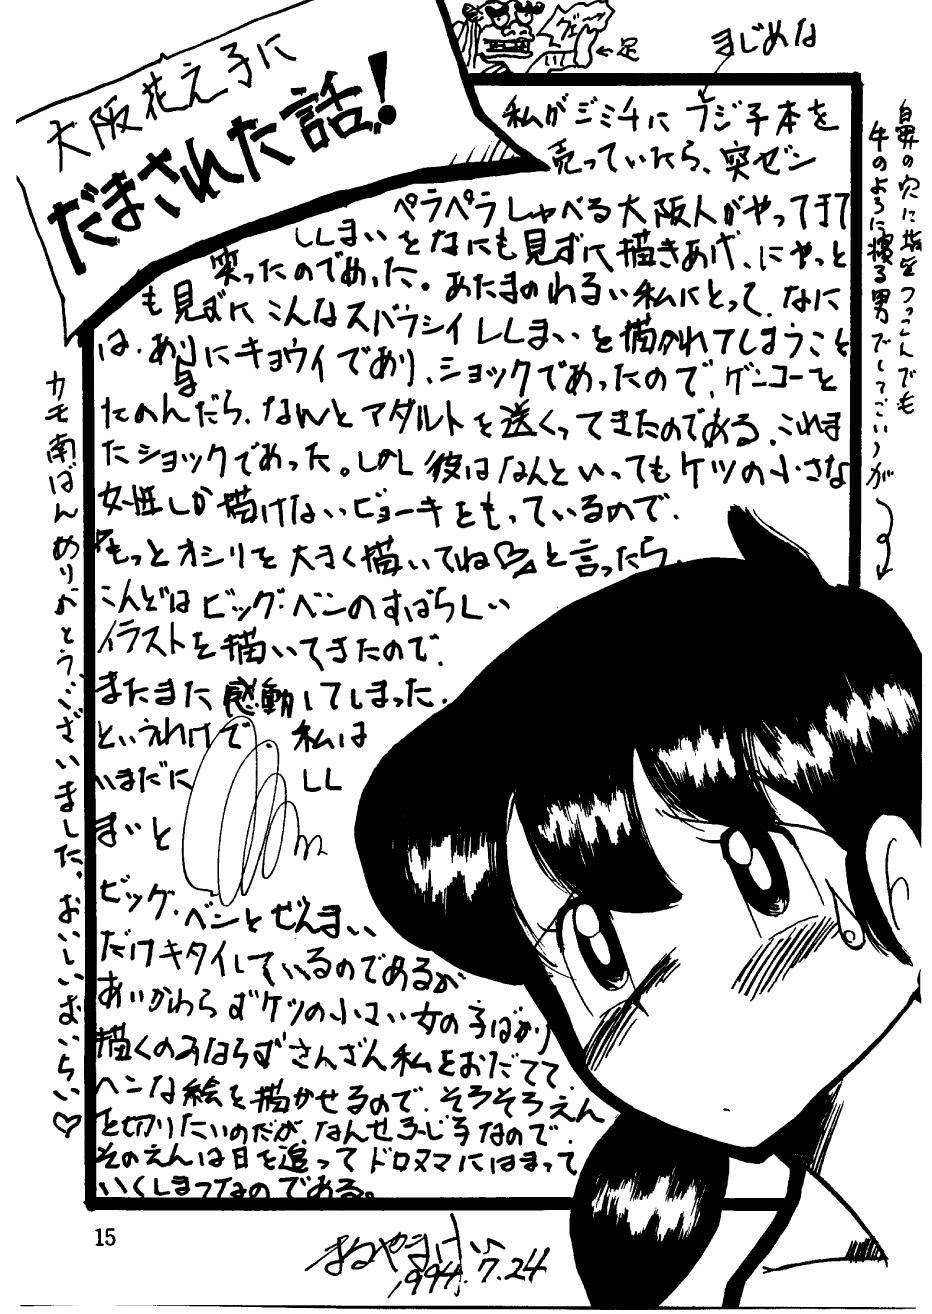 大阪花え子に
だまされた話!
←足
まじめな
私がジミチにフジ子本を
売っていたら、突ゼン
ペラペラしゃべる大阪人がやってきて
ししまいをなにも見ずに描きあげ、にやっと
笑ったのであった。あたまのわるい私にとって、なに
も見ずにこんなスバラシイししまいを描かれてしまうこと
は、あまりにキョウイであり、ショックであったので、ゲンコーを
たのんだら、なんとアダルトを送ってきたのである。これま
たショックであった。しかし彼はなんといってもケツの小さな
女性しか描けないビョーキをもっているので、
『もっとオシリを大きく描いてね♡』と言ったら、
こんどはビッグ・ベンのすばらしい
イラストを描いてきたので、
またまた感動してしまった。
というわけで 私は
いまだに しし
まいと
ビッグ・ベンとぜんまい
だけキタイしているのであるが
あいかわらずケツの小さい女の子ばかり
描くのみならずさんざん私をおだてて、
ヘンな絵を描かせるので、そろそろえん
を切りたいのだが、なんせふじ子なので、
そのえんは日を追ってドロヌマにはまって
いくしまつなのである。
鼻の穴に指をつっこんでも
牛のように寝る男でしてございが
カモ南ばんありがとうございました。おいしいおいらい♡
まるやまけい
1994.7.24
15